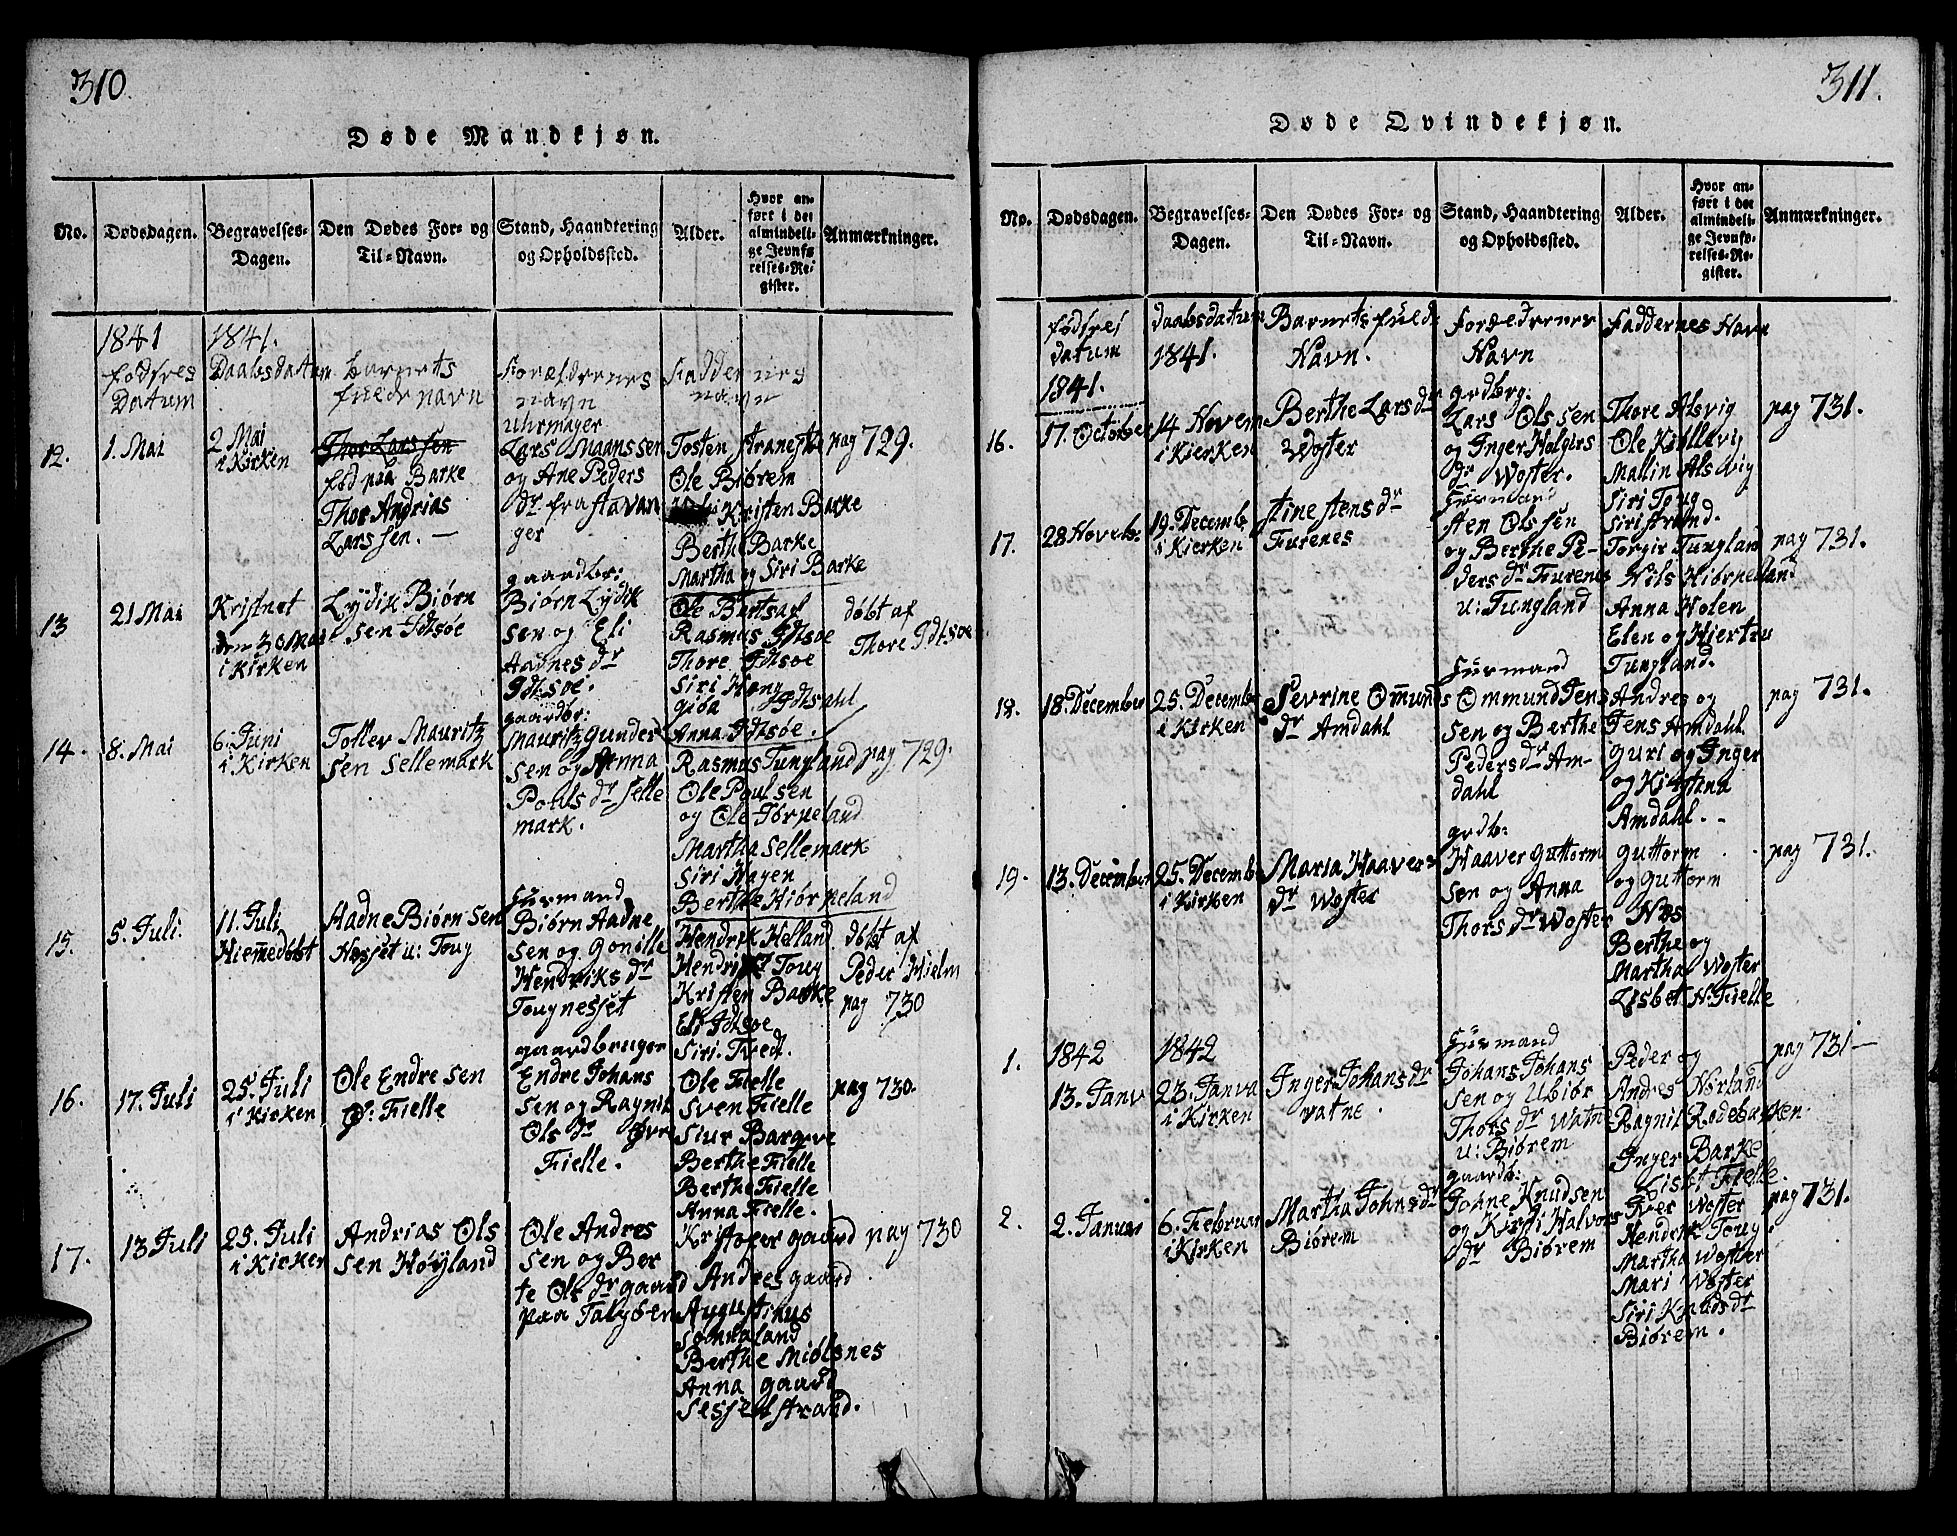 310.
Døde Mandkjøn.
No.
Dødsdagen.
Begravelses-
Dagen.
Den Dødes For- og
Til-Navn.
Stand, Haandtering
og Opholdssted.
Alder.
Hvor an-
ført i det
almindeli-
ge Jevnfø
relses-Re-
gister.
Anmærkninger.
1841
fødsels
Datum
1841.
Daabsdatum
barnets
fulde navn
Forældrernes
navn
Fadder nes
navn
12.
1. Mai
2 Mai
i Kirken
Thor Larssen
fød paa Barke
Thor Andrias
Larssen. —
Uhrmager
Lars Maanssen
og Ane Peders
dr fra Stavan
ger
Tosten
Ole Biørem
Kristen Barke
Berthe Barke
Martha og Siri Barke
pag 729.
13
21 Mai
Kristnet
den 30 Mai
i Kirken
Lydik Biørn
sen Idtsøe
gaardbr:
Biørn Lydik
sen og Eli
Aadnes dr
Idtsøe.
Ole
Rasmus Idtsøe
Thore Idtsøe
Siri
Idtsahl
Anna Idtsøe.
døbt af
Thore Idtsøe
14.
8. Mai
6. Juni
i Kirken
Tollev Mauritz
sen Sellemark
gaardbr:
Mauritz Gunder
sen og Anna
Pouls dr Selle
mark.
Rasmus Tungland
Ole Poulsen
og Ole Jørpeland
Martha Sellemark
Siri Hagen
Berthe Hiørpeland
pag 729.
15.
5. Juli.
11. Juli
Hiemmedøbt
Aadne Biørnsen
Nesset u: Toug
Huusmand
Biørn Aadne
sen og Gonille
Hendriks dr
Tougnesset
Hendrik Helland
Hendrik Toug
Kristen Barke
Eli Idtsøe
Siri Tvedt.
døbt af
Peder Hielm
pag 730
16.
17. Juli
25. Juli
i Kirken
Ole Endresen
Ø: Fielle
gaardbruger
Endre Johans
sen og Ragnil
Ols dr Øvre
Fielle.
Ole Fielle
Sven Fielle
Siur Bargeve
Berthe Fielle
Berthe Fielle
Anna Fielle.
pag 730.
17.
13 Juli
25. Juli
i Kirken
Andrias Ols
sen Høyland
Ole Andres
sen og Ber
te Ols dr gaard
paa Talgøen
Kristofer gaard
Andres gaard
Augustinus
Sønnaland
Berthe Miølsnes
Anna gaard
Sessel strand.
pag 730
311.
Døde Qvindekjøn.
No.
Dødsdagen.
Begravelses-
Dagen.
Den Dødes For- og
Til-Navn.
Stand, Haandtering
og Opholdssted.
Alder.
Hvor an-
ført i det
almindeli-
ge Jevnfø-
relses-Re-
gister.
Anmærkninger.
fødsels
datum
1841.
daabsdatum
1841.
Barnets fulde
Navn.
forældrernes
Navn
Faddernes Navn
16.
17. October
14. Novem
i Kierken
Berthe Lars dr
Woster
grdbrg:
Lars Olssen
og Inger Holgers
dr Woster.
Thore Alsvig
Ole Kallevig
Mallin Alsvig
Siri Toug
Siri strand.
pag 731.
17.
28 Novebr
19. Decemb
i Kierken
Stine Stens dr
Furenes
Huusmand
Sten Olssen
og Berthe Pe-
ders dr Furenes
u: Tungland
Torgir Tungland
Nils Hiørpeland
Anna Holen
Elen og Hiertru
Tungland.
pag 731.
18.
18. December
25. Decemb
i Kirken
Severine Omunds
dr Amdahl
Huusmand
Ommund Jens
sen og Berthe
Peders dr Am-
dahl
Andres og
Jens Amdahl.
Guri og Inger
og Kirstena
Amdahl.
pag 731.
19.
13. December
25. Decemb
i Kirken
Maria Haavers
dr Woster
grdb:
Haaver Guttorm
sen og Anna
Thors dr Woster
Guttorm
og Guttorm
Næs
Berthe og
Martha Woster
Lisbet N: Fielle
pag 731.
1.
1842
13. Janv
1842
23. Janva
i Kirken
Inger Johans dr
vatne.
Huusmand
Johans Johans
sen og Ubiør
Thors dr Watne
u: Biørem
Peder og
Andres Nørland
Ragnil Rødebakken.
Inger Barke
Lisbt Fielle.
pag 731—
2.
2. Januar
6. Februar
i Kirken
Martha Johns dr
Biørem
gaardb:
Johne Knudsen
og Kirsti Halvors
dr Biørem
Iver Woster
Hendrik Toug
Martha Woster
Mari Woster
Siri Knuds dr
Biørem.
pag 731.